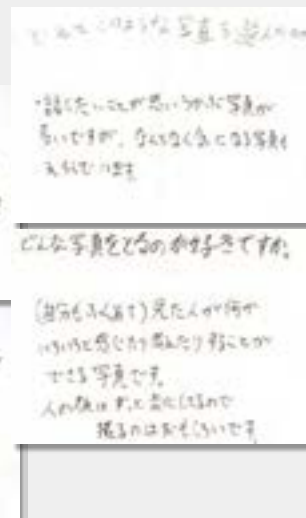 どうしてこのような写真を選んだのか
・話したいことが思いうかぶ写真が
多いですが、なんとなく気になる写真も
えらんでいます
どんな写真をとるのが好きですか。
(自分もふくめて)見た人が何か
いろいろと感じたり考えたりすることが
できる写真です。
人の顔はずっと気にしてるので
撮るのはおもしろいです